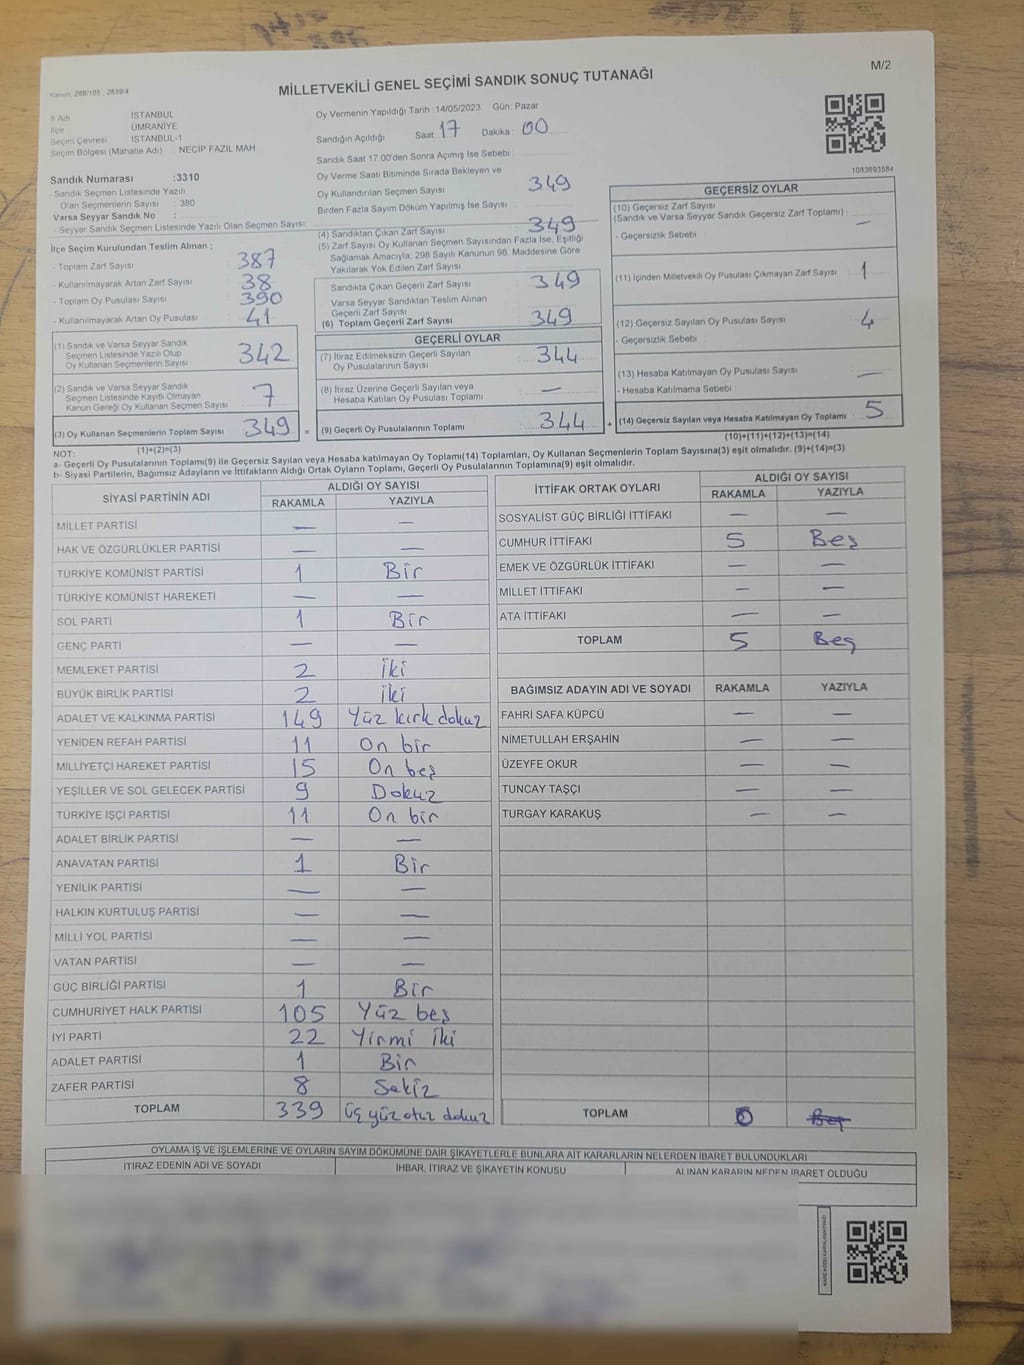 M/2
Kanun: 298/105 , 2839/4
MİLLETVEKİLİ GENEL SEÇİMİ SANDIK SONUÇ TUTANAĞI
İl Adı İSTANBUL
İlçe ÜMRANİYE
Seçim Çevresi İSTANBUL-1
Seçim Bölgesi (Mahalle Adı) NECİP FAZIL MAH
Sandık Numarası :3310
- Sandık Seçmen Listesinde Yazılı
Olan Seçmenlerin Sayısı : 380
Varsa Seyyar Sandık No :
- Seyyar Sandık Seçmen Listesinde Yazılı Olan Seçmen Sayısı:
İlçe Seçim Kurulundan Teslim Alınan ;
- Toplam Zarf Sayısı : 387
- Kullanılmayarak Artan Zarf Sayısı : 38
- Toplam Oy Pusulası Sayısı : 390
- Kullanılmayarak Artan Oy Pusulası : 41
(1) Sandık ve Varsa Seyyar Sandık
Seçmen Listesinde Yazılı Olup
Oy Kullanan Seçmenlerin Sayısı : 342
(2) Sandık ve Varsa Seyyar Sandık
Seçmen Listesinde Kayıtlı Olmayan
Kanun Gereği Oy Kullanan Seçmen Sayısı : 7
(3) Oy Kullanan Seçmenlerin Toplam Sayısı : 349
(1)+(2)=(3)
Oy Vermenin Yapıldığı Tarih :14/05/2023 Gün: Pazar
Sandığın Açıldığı Saat : 17 Dakika : 00
Sandık Saat 17:00'den Sonra Açılmış İse Sebebi :
Oy Verme Saati Bitiminde Sırada Bekleyen ve
Oy Kullandırılan Seçmen Sayısı : 349
Birden Fazla Sayım Döküm Yapılmış İse Sayısı :
(4) Sandıktan Çıkan Zarf Sayısı : 349
(5) Zarf Sayısı Oy Kullanan Seçmen Sayısından Fazla İse, Eşitliği
Sağlamak Amacıyla; 298 Sayılı Kanunun 98. Maddesine Göre
Yakılarak Yok Edilen Zarf Sayısı :
Sandıkta Çıkan Geçerli Zarf Sayısı : 349
Varsa Seyyar Sandıktan Teslim Alınan
Geçerli Zarf Sayısı :
(6) Toplam Geçerli Zarf Sayısı : 349
GEÇERLİ OYLAR
(7) İtiraz Edilmeksizin Geçerli Sayılan
Oy Pusulalarının Sayısı : 344
(8) İtiraz Üzerine Geçerli Sayılan veya
Hesaba Katılan Oy Pusulası Toplamı : —
= (9) Geçerli Oy Pusulalarının Toplamı : 344
1083693584
GEÇERSİZ OYLAR
(10) Geçersiz Zarf Sayısı
(Sandık ve Varsa Seyyar Sandık Geçersiz Zarf Toplamı) : —
- Geçersizlik Sebebi :
(11) İçinden Milletvekili Oy Pusulası Çıkmayan Zarf Sayısı : 1
(12) Geçersiz Sayılan Oy Pusulası Sayısı : 4
- Geçersizlik Sebebi :
(13) Hesaba Katılmayan Oy Pusulası Sayısı : —
- Hesaba Katılmama Sebebi :
+ (14) Geçersiz Sayılan veya Hesaba Katılmayan Oy Toplamı : 5
(10)+(11)+(12)+(13)=(14)
NOT:
a- Geçerli Oy Pusulalarının Toplamı(9) ile Geçersiz Sayılan veya Hesaba Katılmayan Oy Toplamı(14) Toplamları, Oy Kullanan Seçmenlerin Toplam Sayısına(3) eşit olmalıdır. (9)+(14)=(3)
b- Siyasi Partilerin, Bağımsız Adayların ve İttifakların Aldığı Ortak Oyların Toplamı, Geçerli Oy Pusulalarının Toplamına(9) eşit olmalıdır.
SİYASİ PARTİNİN ADI ALDIĞI OY SAYISI
RAKAMLA YAZIYLA
MİLLET PARTİSİ — —
HAK VE ÖZGÜRLÜKLER PARTİSİ — —
TÜRKİYE KOMÜNİST PARTİSİ 1 Bir
TÜRKİYE KOMÜNİST HAREKETİ — —
SOL PARTİ 1 Bir
GENÇ PARTİ — —
MEMLEKET PARTİSİ 2 iki
BÜYÜK BİRLİK PARTİSİ 2 iki
ADALET VE KALKINMA PARTİSİ 149 Yüz kırk dokuz
YENİDEN REFAH PARTİSİ 11 On bir
MİLLİYETÇİ HAREKET PARTİSİ 15 On beş
YEŞİLLER VE SOL GELECEK PARTİSİ 9 Dokuz
TÜRKİYE İŞÇİ PARTİSİ 11 On bir
ADALET BİRLİK PARTİSİ — —
ANAVATAN PARTİSİ 1 Bir
YENİLİK PARTİSİ — —
HALKIN KURTULUŞ PARTİSİ — —
MİLLİ YOL PARTİSİ — —
VATAN PARTİSİ — —
GÜÇ BİRLİĞİ PARTİSİ 1 Bir
CUMHURİYET HALK PARTİSİ 105 Yüz beş
İYİ PARTİ 22 Yirmi iki
ADALET PARTİSİ 1 Bir
ZAFER PARTİSİ 8 Sekiz
TOPLAM 339 üç yüz otuz dokuz
İTTİFAK ORTAK OYLARI ALDIĞI OY SAYISI
RAKAMLA YAZIYLA
SOSYALİST GÜÇ BİRLİĞİ İTTİFAKI — —
CUMHUR İTTİFAKI 5 Beş
EMEK VE ÖZGÜRLÜK İTTİFAKI — —
MİLLET İTTİFAKI — —
ATA İTTİFAKI — —
TOPLAM 5 Beş
BAĞIMSIZ ADAYIN ADI VE SOYADI RAKAMLA YAZIYLA
FAHRİ SAFA KÜPCÜ — —
NİMETULLAH ERŞAHİN — —
ÜZEYFE OKUR — —
TUNCAY TAŞÇI — —
TURGAY KARAKUŞ — —
TOPLAM 0 Beş
OYLAMA İŞ VE İŞLEMLERİNE VE OYLARIN SAYIM DÖKÜMÜNE DAİR ŞİKAYETLERLE BUNLARA AİT KARARLARIN NELERDEN İBARET BULUNDUKLARI
İTİRAZ EDENİN ADI VE SOYADI İHBAR, İTİRAZ VE ŞİKAYETİN KONUSU ALINAN KARARIN NEDEN İBARET OLDUĞU